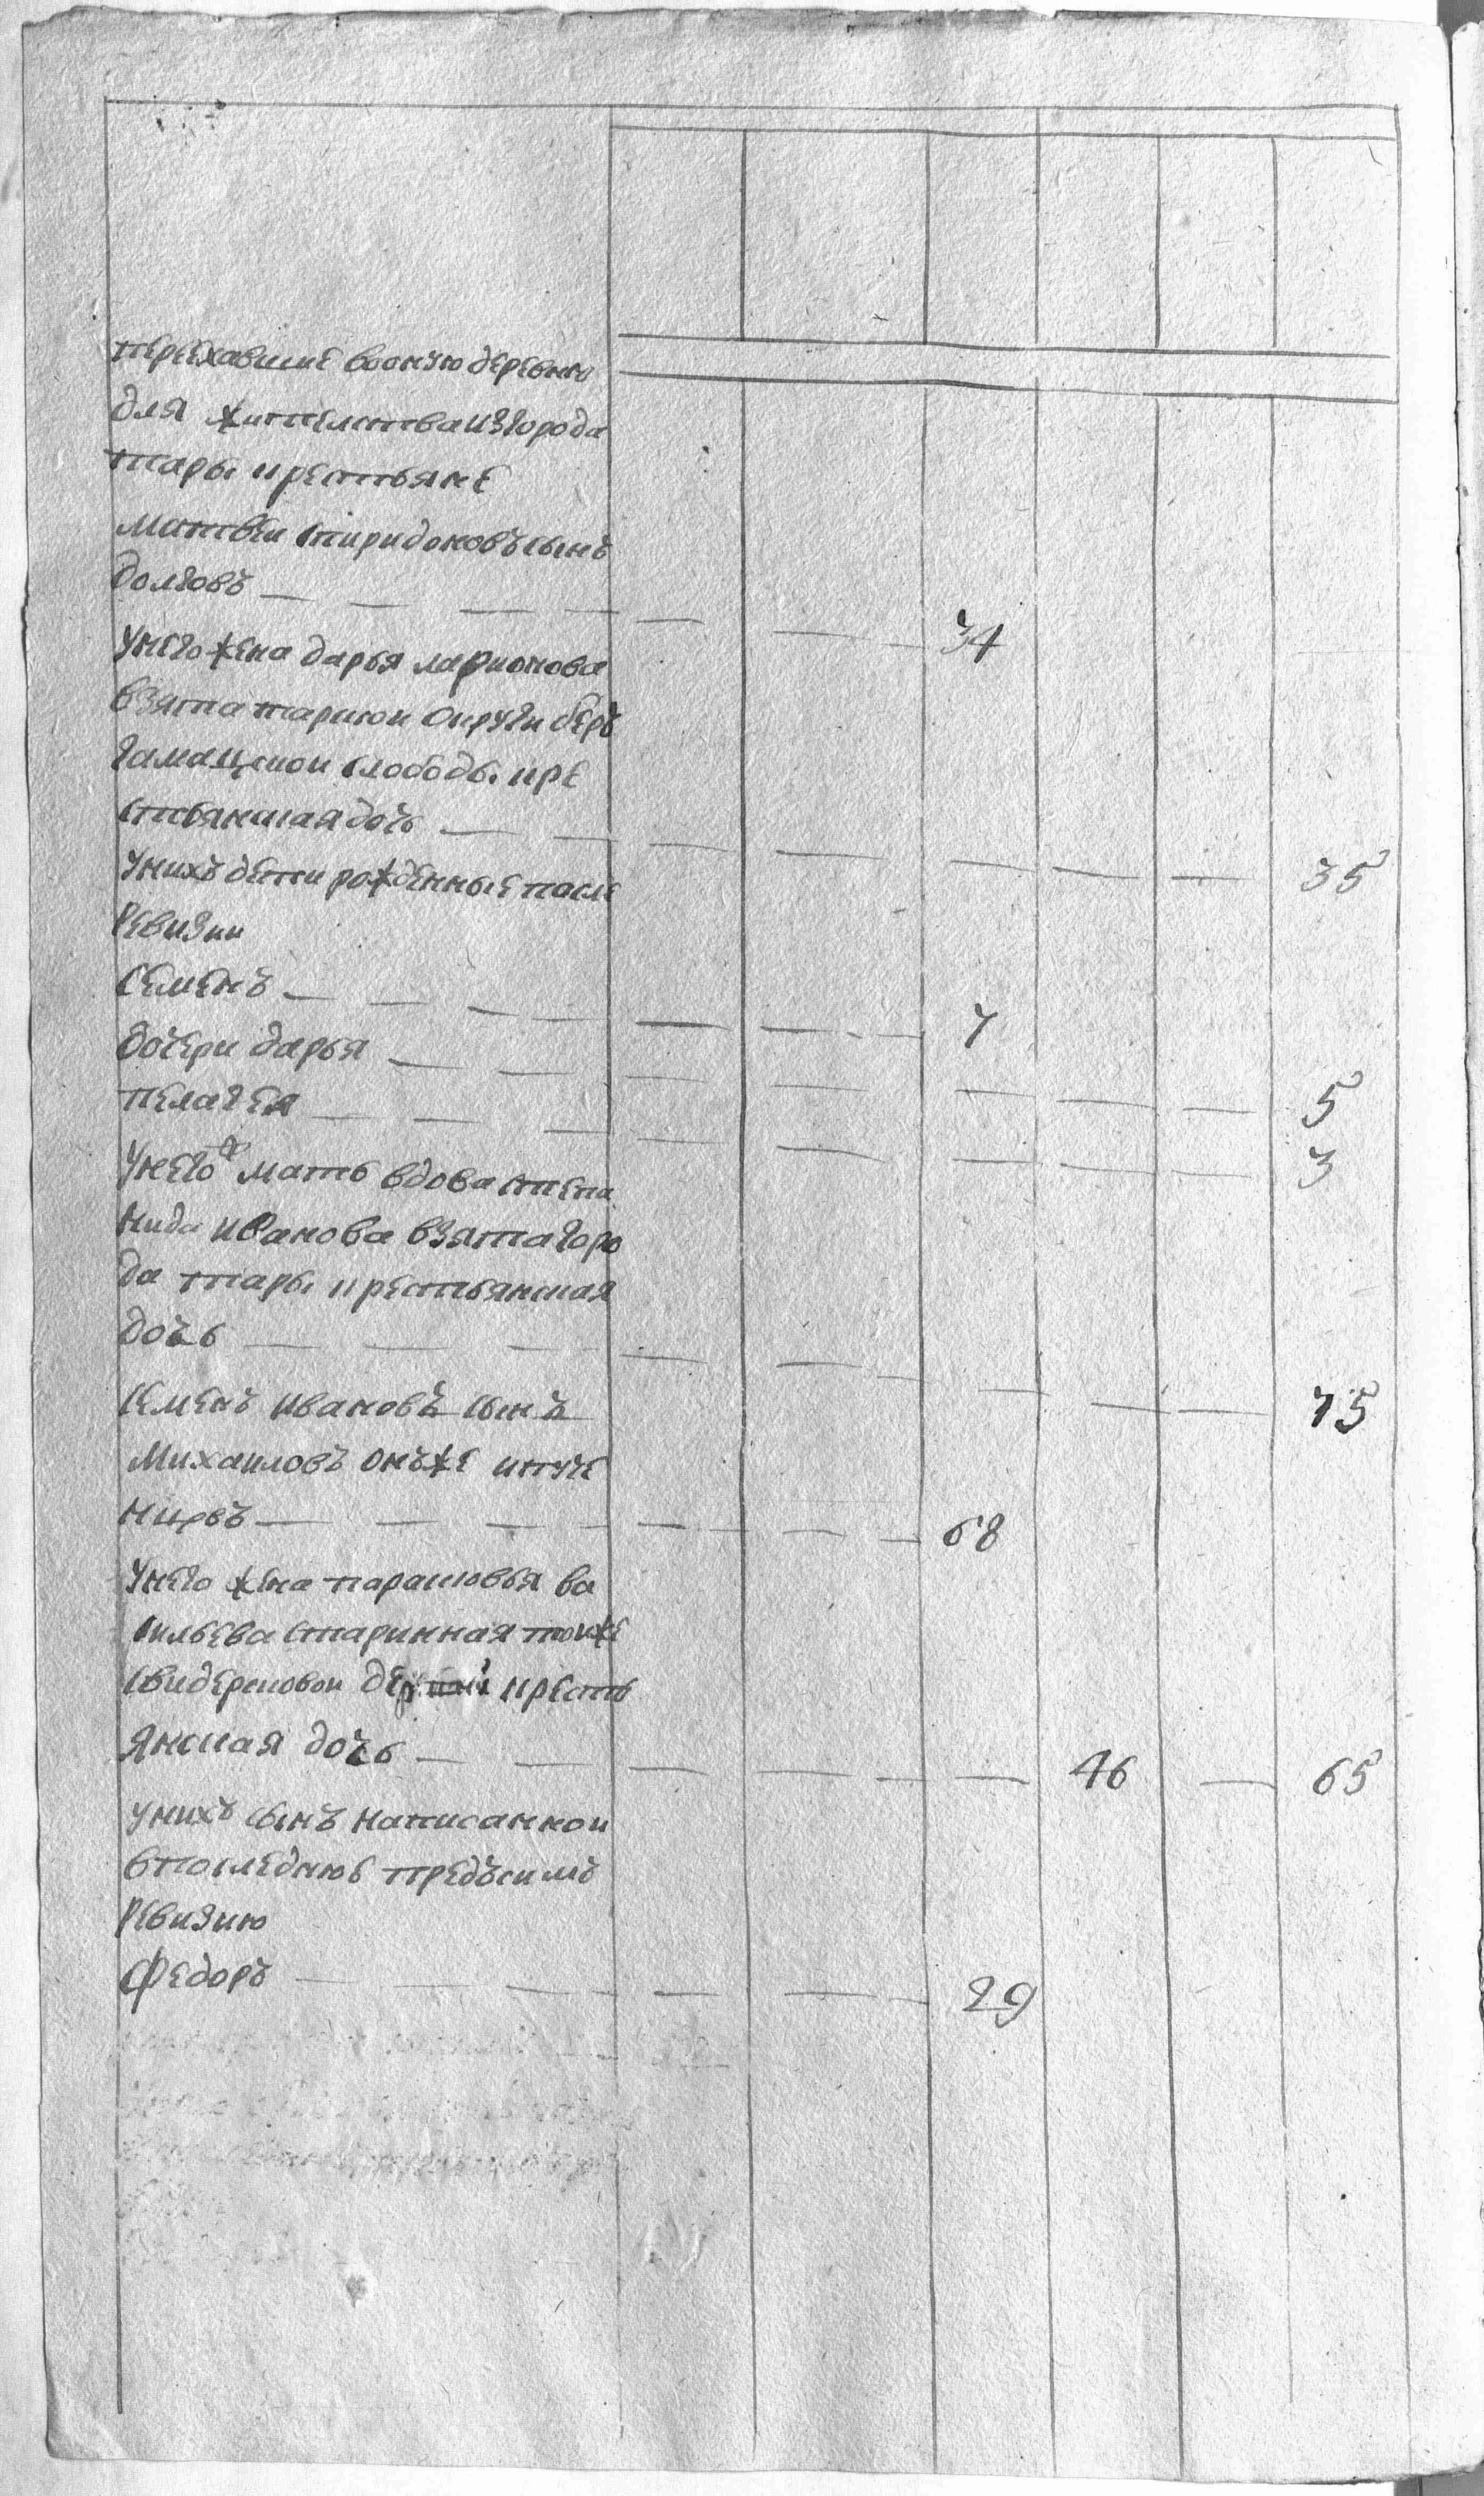 переехавшие вооную деревню
для жителства изгорода
тары крестьяне
матвеи спиридоновъ сынъ
долговъ — — — — — — — 34
унего жена дарья ларионова
взята тарской округи бер
гамацкой слободы кре
стьянская дочь — — — — — — — 35
унихъ дети рожденные после
ревизии
семенъ — — — — — — — 7
дочери дарья — — — — — — — 5
пелагея — — — — — — — 3
унегож мать вдова степа
нида иванова взята горо
да тары крестьянская
дочь — — — — — — — 75
семенъ ивановъ сынъ
михаиловъ онъже
— — — — — — — 68
унего жена парасковья ва
сильева старинная тойже
свидерсковой крестъ
янская дочь — — — — — — 46 — 65
унихъ сынъ написанной
впоследнюю предъсимъ
ревизию
федоръ — — — — — — 29